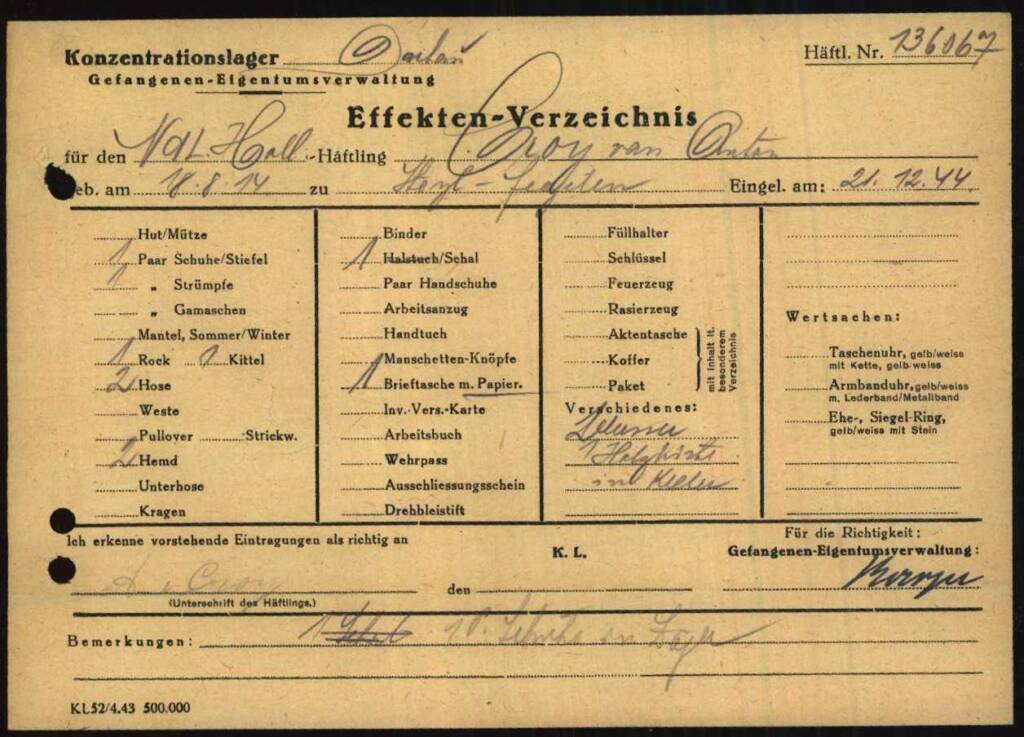 Konzentrationslager Dachau
Häftl. Nr. 136067
Gefangenen-Eigentumsverwaltung
Effekten-Verzeichnis
für den Ndl. Holl.-Häftling Croy van Anton
geb. am 18.8.14 zu Eingel. am: 21.12.44
Hut/Mütze
1 Paar Schuhe/Stiefel
1 „ Strümpfe
„ Gamaschen
Mantel, Sommer/Winter
1 Rock 1 Kittel
2 Hose
Weste
Pullover Strickw.
2 Hemd
Unterhose
Kragen
Binder
1 Halstuch/Schal
Paar Handschuhe
Arbeitsanzug
Handtuch
Manschetten-Knöpfe
1 Brieftasche m. Papier.
Inv.-Vers.-Karte
Arbeitsbuch
Wehrpass
Ausschliessungsschein
Drehbleistift
Füllhalter
Schlüssel
Feuerzeug
Rasierzeug
Aktentasche
Koffer
Paket
mit Inhalt lt.
besonderem
Verzeichnis
Verschiedenes:
1 Holzkiste
im Keller
Wertsachen:
Taschenuhr, gelb/weiss
mit Kette, gelb/weiss
Armbanduhr, gelb/weiss
m. Lederband/Metallband
Ehe-, Siegel-Ring,
gelb/weiss mit Stein
Ich erkenne vorstehende Eintragungen als richtig an
K. L.
Für die Richtigkeit:
Gefangenen-Eigentumsverwaltung:
A v Croy
den
(Unterschrift des Häftlings.)
Bemerkungen: 1 Schal 1 P. Schuhe im Lager
KL52/4.43 500.000